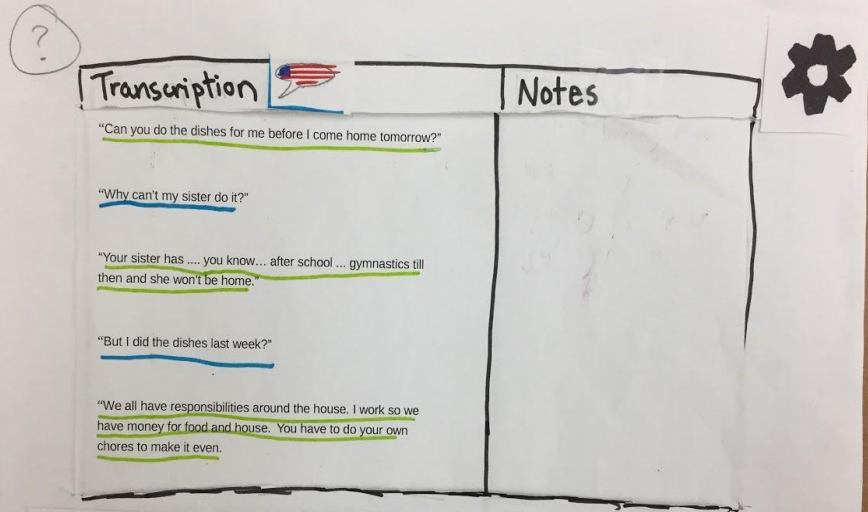 ?
Transcription
Notes
“Can you do the dishes for me before I come home tomorrow?”
“Why can't my sister do it?”
“Your sister has .... you know... after school ... gymnastics till
then and she won't be home.”
“But I did the dishes last week?”
“We all have responsibilities around the house. I work so we
have money for food and house.  You have to do your own
chores to make it even.